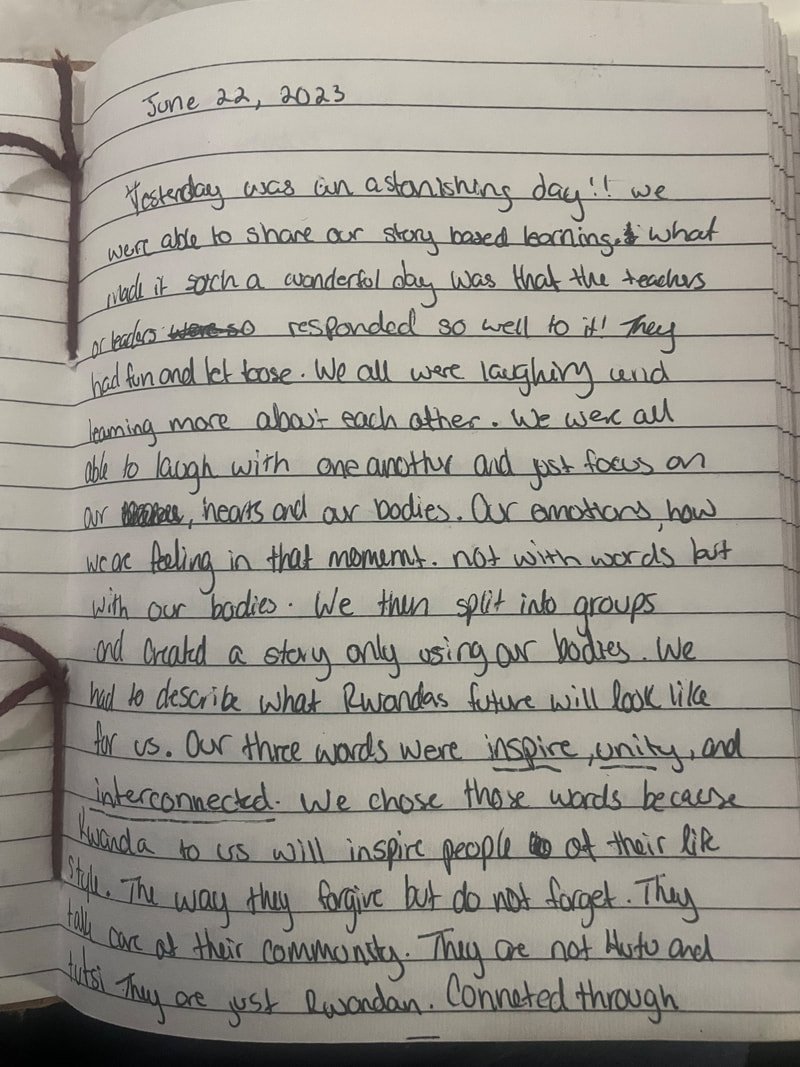 June 22, 2023
Yesterday was an astonishing day!! we
were able to share our story based learning. & what
made it such a wonderful day was that the teachers
or leaders were so responded so well to it! They
had fun and let loose. We all were laughing and
learning more about each other. We were all
able to laugh with one another and just focus on
our , hearts and our bodies. Our emotions, how
we are feeling in that moment. not with words but
with our bodies. We then split into groups
and created a story only using our bodies. We
had to describe what Rwandas future will look like
for us. Our three words were inspire, unity, and
interconnected. We chose those words because
Rwanda to us will inspire people of their life
style. The way they forgive but do not forget. They
take care of their community. They are not Hutu and
tutsi They are just Rwandan. Conneted through